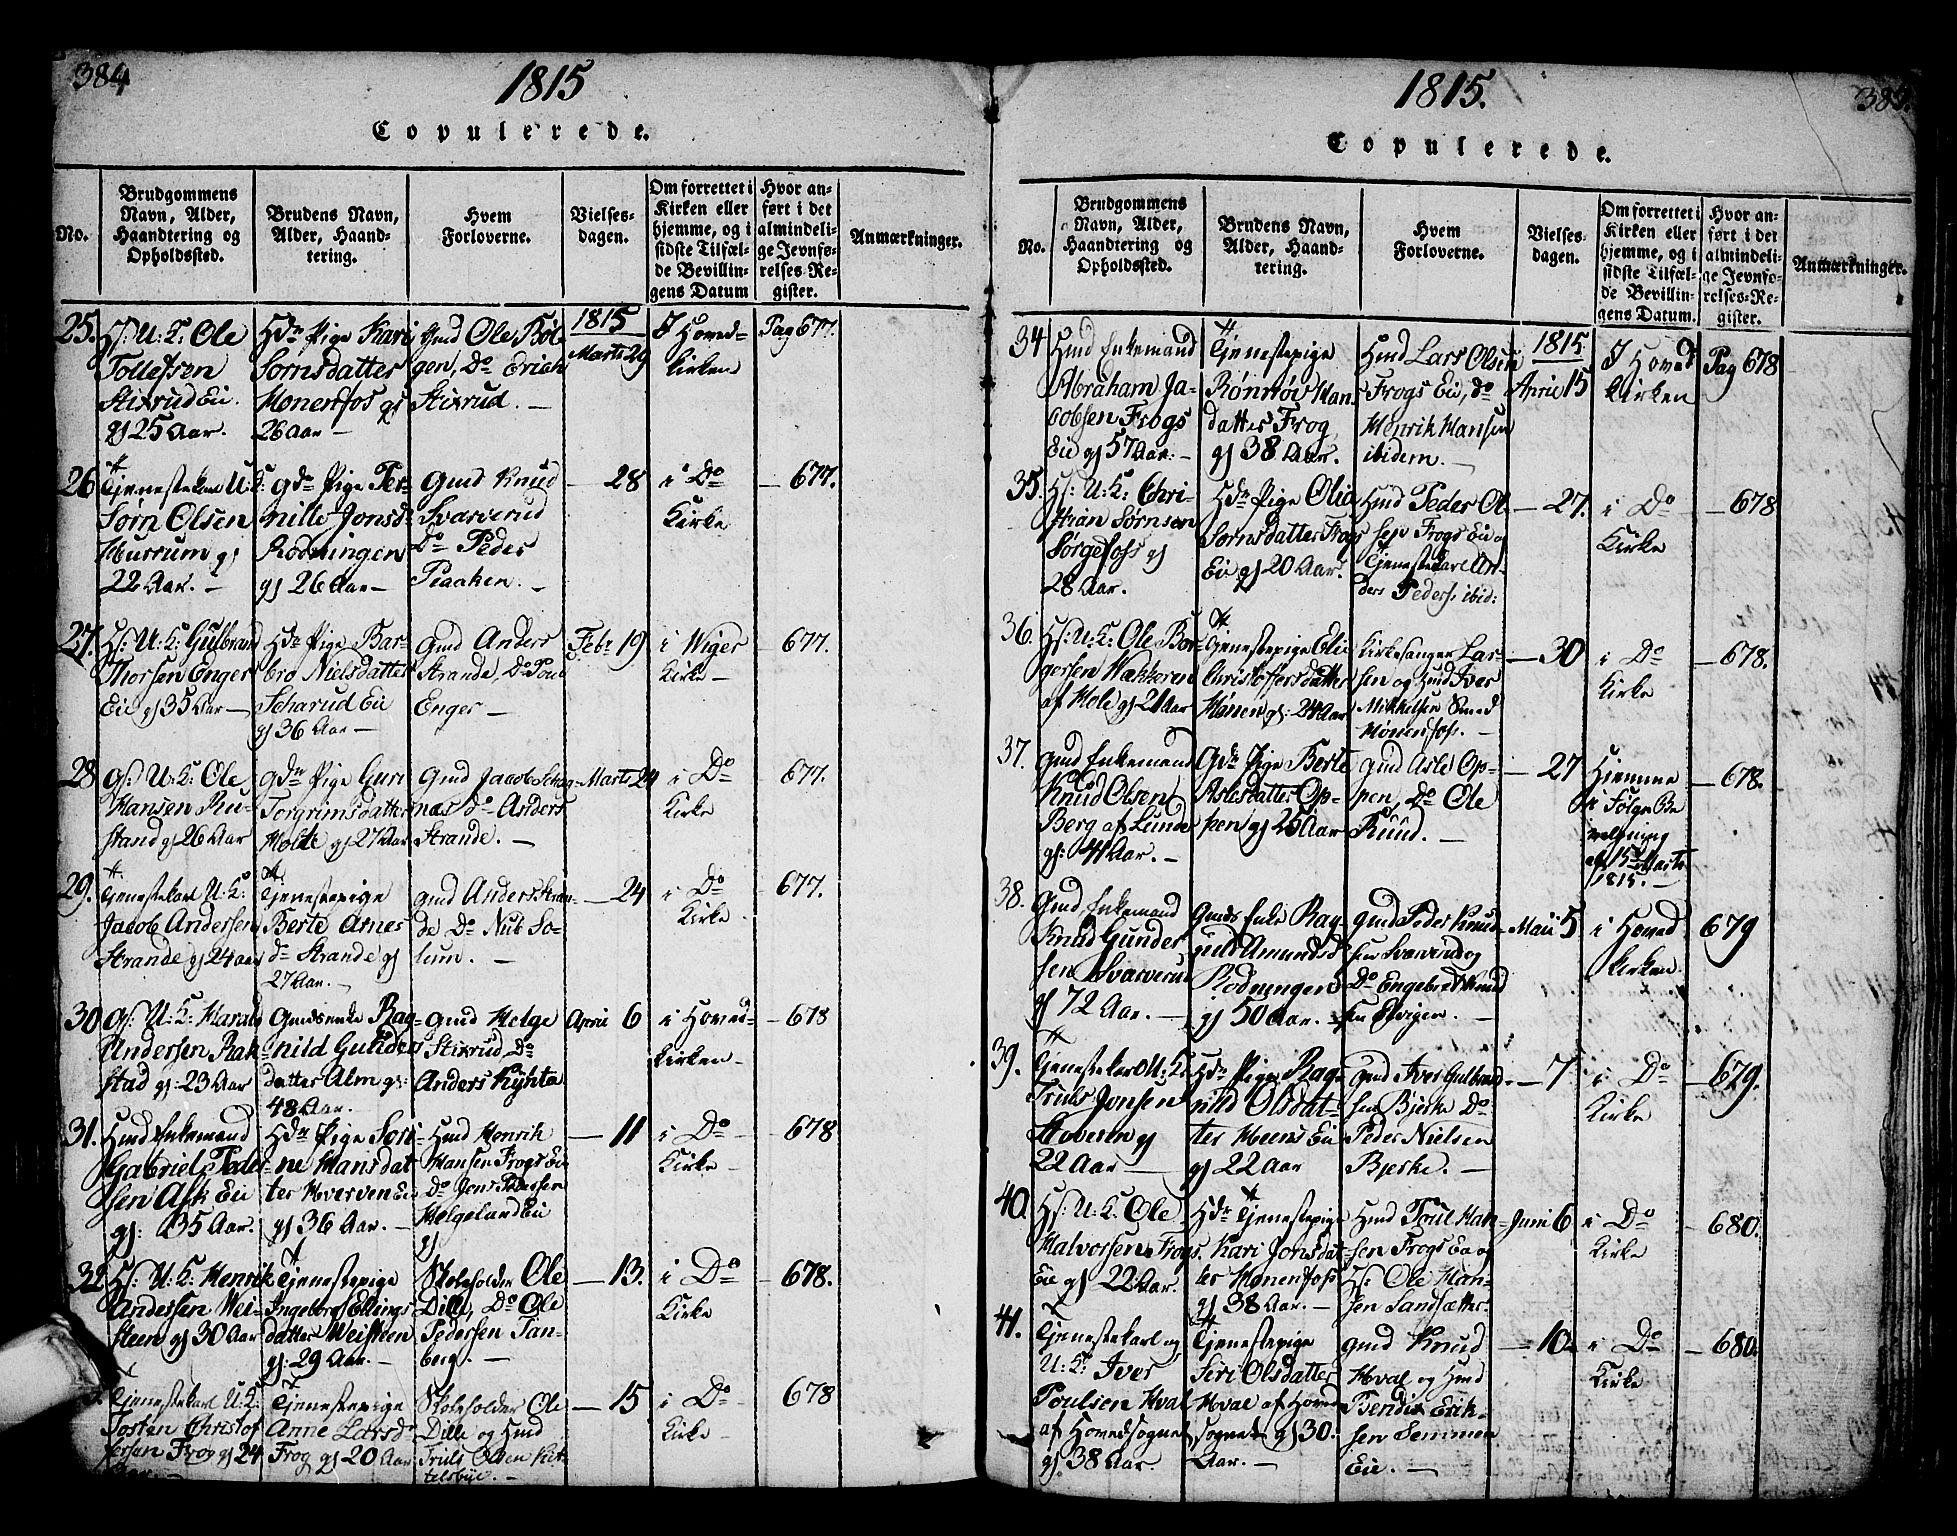 384
1815
Copulerede.
No.
Brudgommens Navn, Alder, Haandtering og Opholdssted.
Brudens Navn, Alder, Haandtering.
Hvem Forloverne.
Vielsesdagen.
Om forrettet i Kirken eller hjemme, og i sidste Tilfælde Bevillingens Datum
Hvor anført i det almindelige Jevnførelses-Register.
Anmærkninger.
25. Hs: U: K: Ole
Tollefsen
Stixrud Eie.
gl 25 Aar.
Hdr Pige Kari
Sørnsdatter
Hønenfos gl
26 Aar —
Gmd Ole Bøl-
gen, Do Erich
Stixrud. —
1815
Marti 29
I Hoved-
kirken
Pag 677.
26 Tjenestekarl U: K:
Sørn Olsen
Hurrum gl
22 Aar. —
gdr Pige Per-
nille Jonsd
Rødningen
gl 26 Aar —
Gmd Knud
Svarverud
Do Peder
Plaaken. —
— 28
i Do
Kirke
— 677.
27. Hs: U: K: Gulbrand
Thorsen Enger
Eie gl 35 Aar —
Hdr Pige Bar-
bro Nielsdatter
Scharud Eie
gl 36 Aar —
Gmd Anders
Strande, Do Poul
Enger —
Febr 19
i Wiger
Kirke —
677.
28 gs: U: K: Ole
Hansen Ru-
stand gl 26 Aar
gdr Pige Guri
Torgrimsdatter
Holte gl 27 Aar
Gmd Jacob Schag-
nes Do Anders
Strande. —
Marti 24
i Do
Kirke
677.
29. Tjenestekarl U: K:
Jacob Andersen
Strande gl 24 aar
Tjenestepige
Berte Arnes
dr Strande gl
27 Aar. —
gmd Anders Stran-
de Do Nub So-
lum. —
— 24
i Do
Kirke
677.
30 Gs: U: K: Harald
Andersen Rak-
stad gl: 23 Aar
Gmdsenke Rag-
nild Gunders
datter Alm gl:
48 Aar.
Gmd Helge
Stixrud, Do
Anders Kihte
April 6
i Hoved-
kirken —
— 678
31. Hmd Enkemand
Gabriel Peder-
sen Ask Eie
gl: 35 Aar.
Hdr Pige Sori-
ne Hansdat
ter Hverven Eie
gl 36 Aar. —
Hmd Henrik
Hansen Frogs Eie
Do Jens Pedersen
Helgeland Eie
— 11
i Do
Kirke —
678
32 Hs: U: K: Henrik
Andersen Wei-
steen gl 30 Aar
Tjenestepige
Ingeborg Ellings
datter Weisteen
gl: 29 Aar. —
Skoleholder Ole
Dille, Do Ole
Pedersen Tan-
berg. —
— 13.
i Do
Kirke
— 678.
Tjenestekarl U: K:
Tosten Christof
fersen Frog gl 24
Aar —
Tjenestepige
Anne Larsd
Frog gl 20 Aar
Skoleholder Ole
Dille og Hmd
Truls Olsen Kit-
telsbye. —
— 15
i Do
Kirke
678
1815.
385.
Copulerede.
No.
Brudgommens Navn, Alder, Haandtering og Opholdsted.
Brudens Navn, Alder, Haandtering.
Hvem Forloverne.
Vielsesdagen.
Om forrettet i Kirken eller hjemme, og i sidste Tilfælde Bevillingens Datum.
Hvor anført i det almindelige Jevnførelses-Register.
Anmærkninger.
34 Hmd Enkemand
Abraham Ja-
cobsen Frogs
Eie gl 57 Aar. —
Tjenestepige
Rønnøv Han
datter Frog
gl 38 Aar.
Hmd Lars Olsen
Frogs Eie, Do
Henrik Hansen
ibidem. —
1815
April 15
I Hoved
kirken
Pag 678
35. Hs: U: K: Chri-
stian Sørnsen
Sørgefoss gl
28 Aar.
Hdr Pige Olia
Sørnsdatter Frogs
Eie gl 20 Aar.
Hmd Peder Ol
sen Frogs Eie og
Tjenestekarl An-
ders Peders: ibid:
— 27.
i Do
Kirke
— 678
36. Hs: U: K: Ole Bor-
gersen Wækkeren
af Hole gl 21 Aar
Tjenestepige Eli
Christoffersdatter
Hønen gl: 24 Aar
Kirkesanger Lar-
sen og Hmd Iver
Mikkelsen Smed
Hønenfoss. —
— 30
i Do
Kirke
— 678.
37. gmd Enkemand
Knud Olsen
Berg af Lunder
gl: 41 Aar. —
Gdr Pige Berte
Aslesdatter Op-
pen gl 25 Aar
gmd Asle Op-
pen, Do Ole
Ruud. —
— 27
Hjemme
i Følge Be
vilgning
af 15 Marti
1815. —
— 678.
38. Gmd Enkemand
Knud Gunder
sen Svarverud
gl 72 Aar. —
Gmds Enke Rag-
nild Amundsd
Rødningen
gl 50 Aar. —
gmd Peder Knud-
sen Svarverud og
Do Engebret Knud
sen Elvigen. —
Maii 5
i Hoved
kirken.
679
39. Tjenestekarl U: K:
Truls Jonsen
Hoveren gl
22 Aar —
Hdr Pige Rag-
nild Olsdat-
ter Heens Eie
gl 22 Aar
gmd Iver Gulbrand
sen Bjerke Do
Peder Nielsen
Bjerke. —
— 7.
i Do
Kirke
— 679.
40. Hs: U: K: Ole
Halvorsen Frogs
Eie gl 22 Aar.
Hdr Tjenestepige
Kari Jonsdat-
ter Hønenfoss
gl 38 Aar. —
Hmd Poul Han-
sen Frogs Eie og
Hs: Ole Han-
sen Sandsætter.
Juni 6
i Do
Kirke
— 680.
41. Tjenestekarl og
U: K: Iver
Poulsen Hval
af Hovedsognet
gl 38 Aar
Tjenestepige
Siri Olsdatter
Hval af Hoved
sognet gl 30.
Aar. —
gmd Knud
Hval og Hmd
Bendix Erik-
sen Semmen
Eie. —
— 10.
i Do
Kirke
— 680.